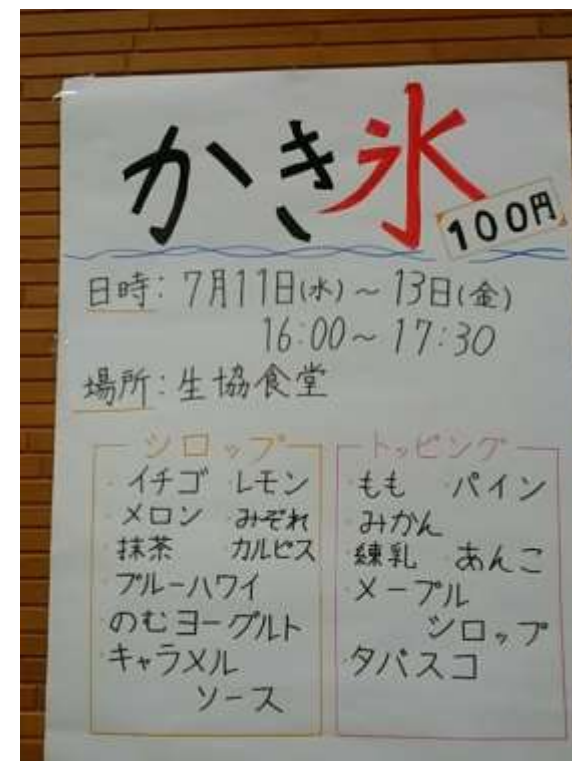 かき氷
100円
日時：7月11日(水)～13日(金)
16:00～17:30
場所：生協食堂
シロップ
・イチゴ ・レモン
・メロン ・みぞれ
・抹茶 ・カルピス
・ブルーハワイ
・のむヨーグルト
・キャラメル
ソース
トッピング
・もも ・パイン
・みかん
・練乳 ・あんこ
・メープル
シロップ
・タバスコ